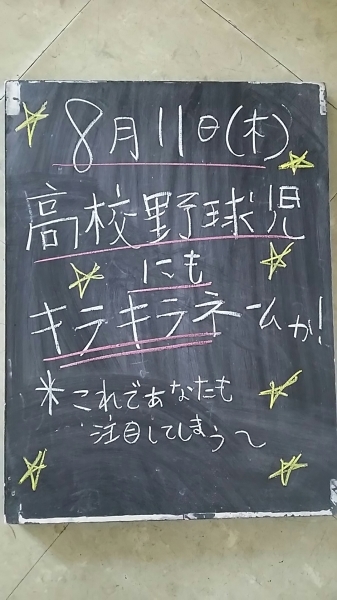 8月11日(木)
高校野球児
にも
キラキラネームが!
*これであなたも
注目してしまう〜